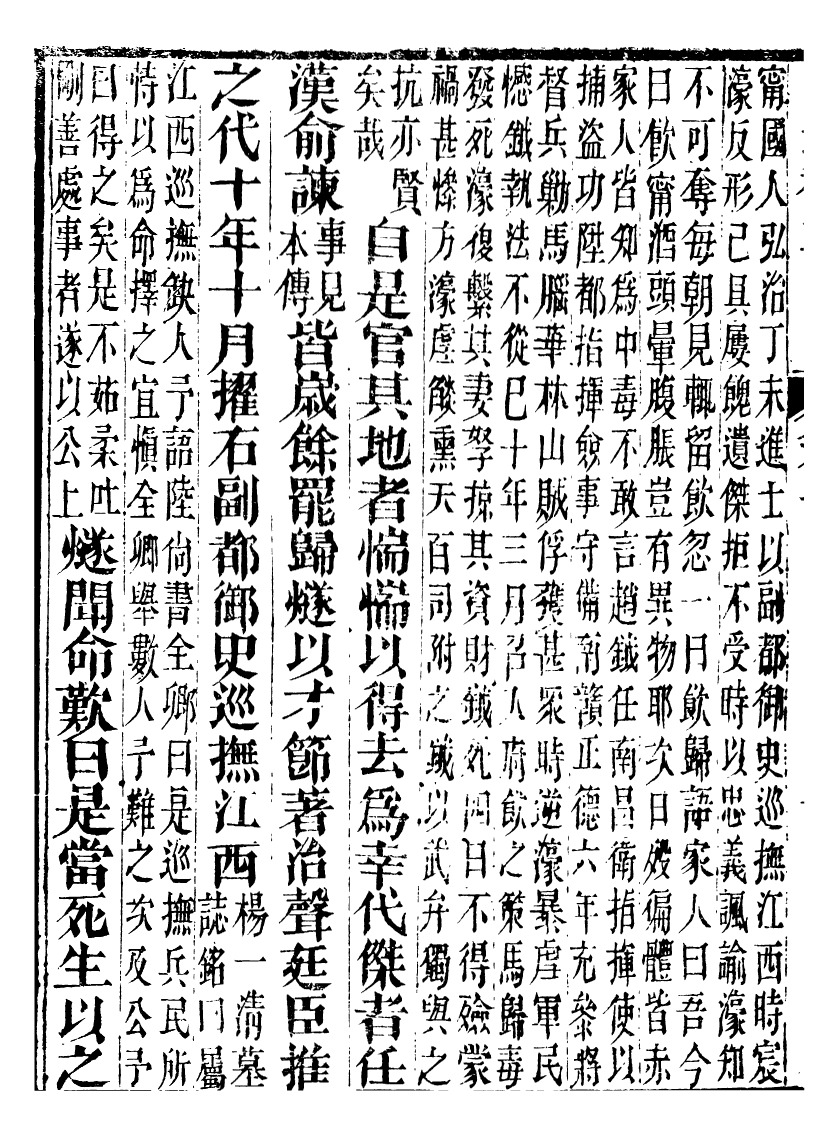 甯國人弘治丁未進士以副都御史巡撫江西時宸
濠反形已具屢餽遺傑拒不受時以忠義諷諭濠知
不可奪每朝見輒留飲忽一日飲歸語家人曰吾今
日飲甯酒頭暈腹脹豈有異物耶次日歿徧體皆赤
家人皆知爲中毒不敢言趙鉞任南昌衛指揮使以
捕盜功陞都指揮僉事守備南贛正德六年充參將
督兵勦馬腦華林山賊俘獲甚衆時逆濠暴虐軍民
憾鉞執法不從巳十年三月召人府飲之策馬歸毒
發死濠復繫其妻孥掠其資財鉞死四日不得殮蒙
禍甚慘方濠虐燄熏天百司附之鉞以武弁獨與之
抗亦賢
矣哉
自是官其地者惴惴以得去爲幸代傑者任
漢俞諫
事見
本傳
皆歲餘罷歸燧以才節著治聲廷臣推
之代十年十月擢右副都御史巡撫江西
楊一清墓
誌銘曰屬
江西巡撫缺人予語陸尙書全卿曰是巡撫兵民所
恃以爲命擇之宜愼全卿舉數人予難之次及公予
曰得之矣是不茹柔吐
剛善處事者遂以公上
燧聞命歎曰是當死生以之